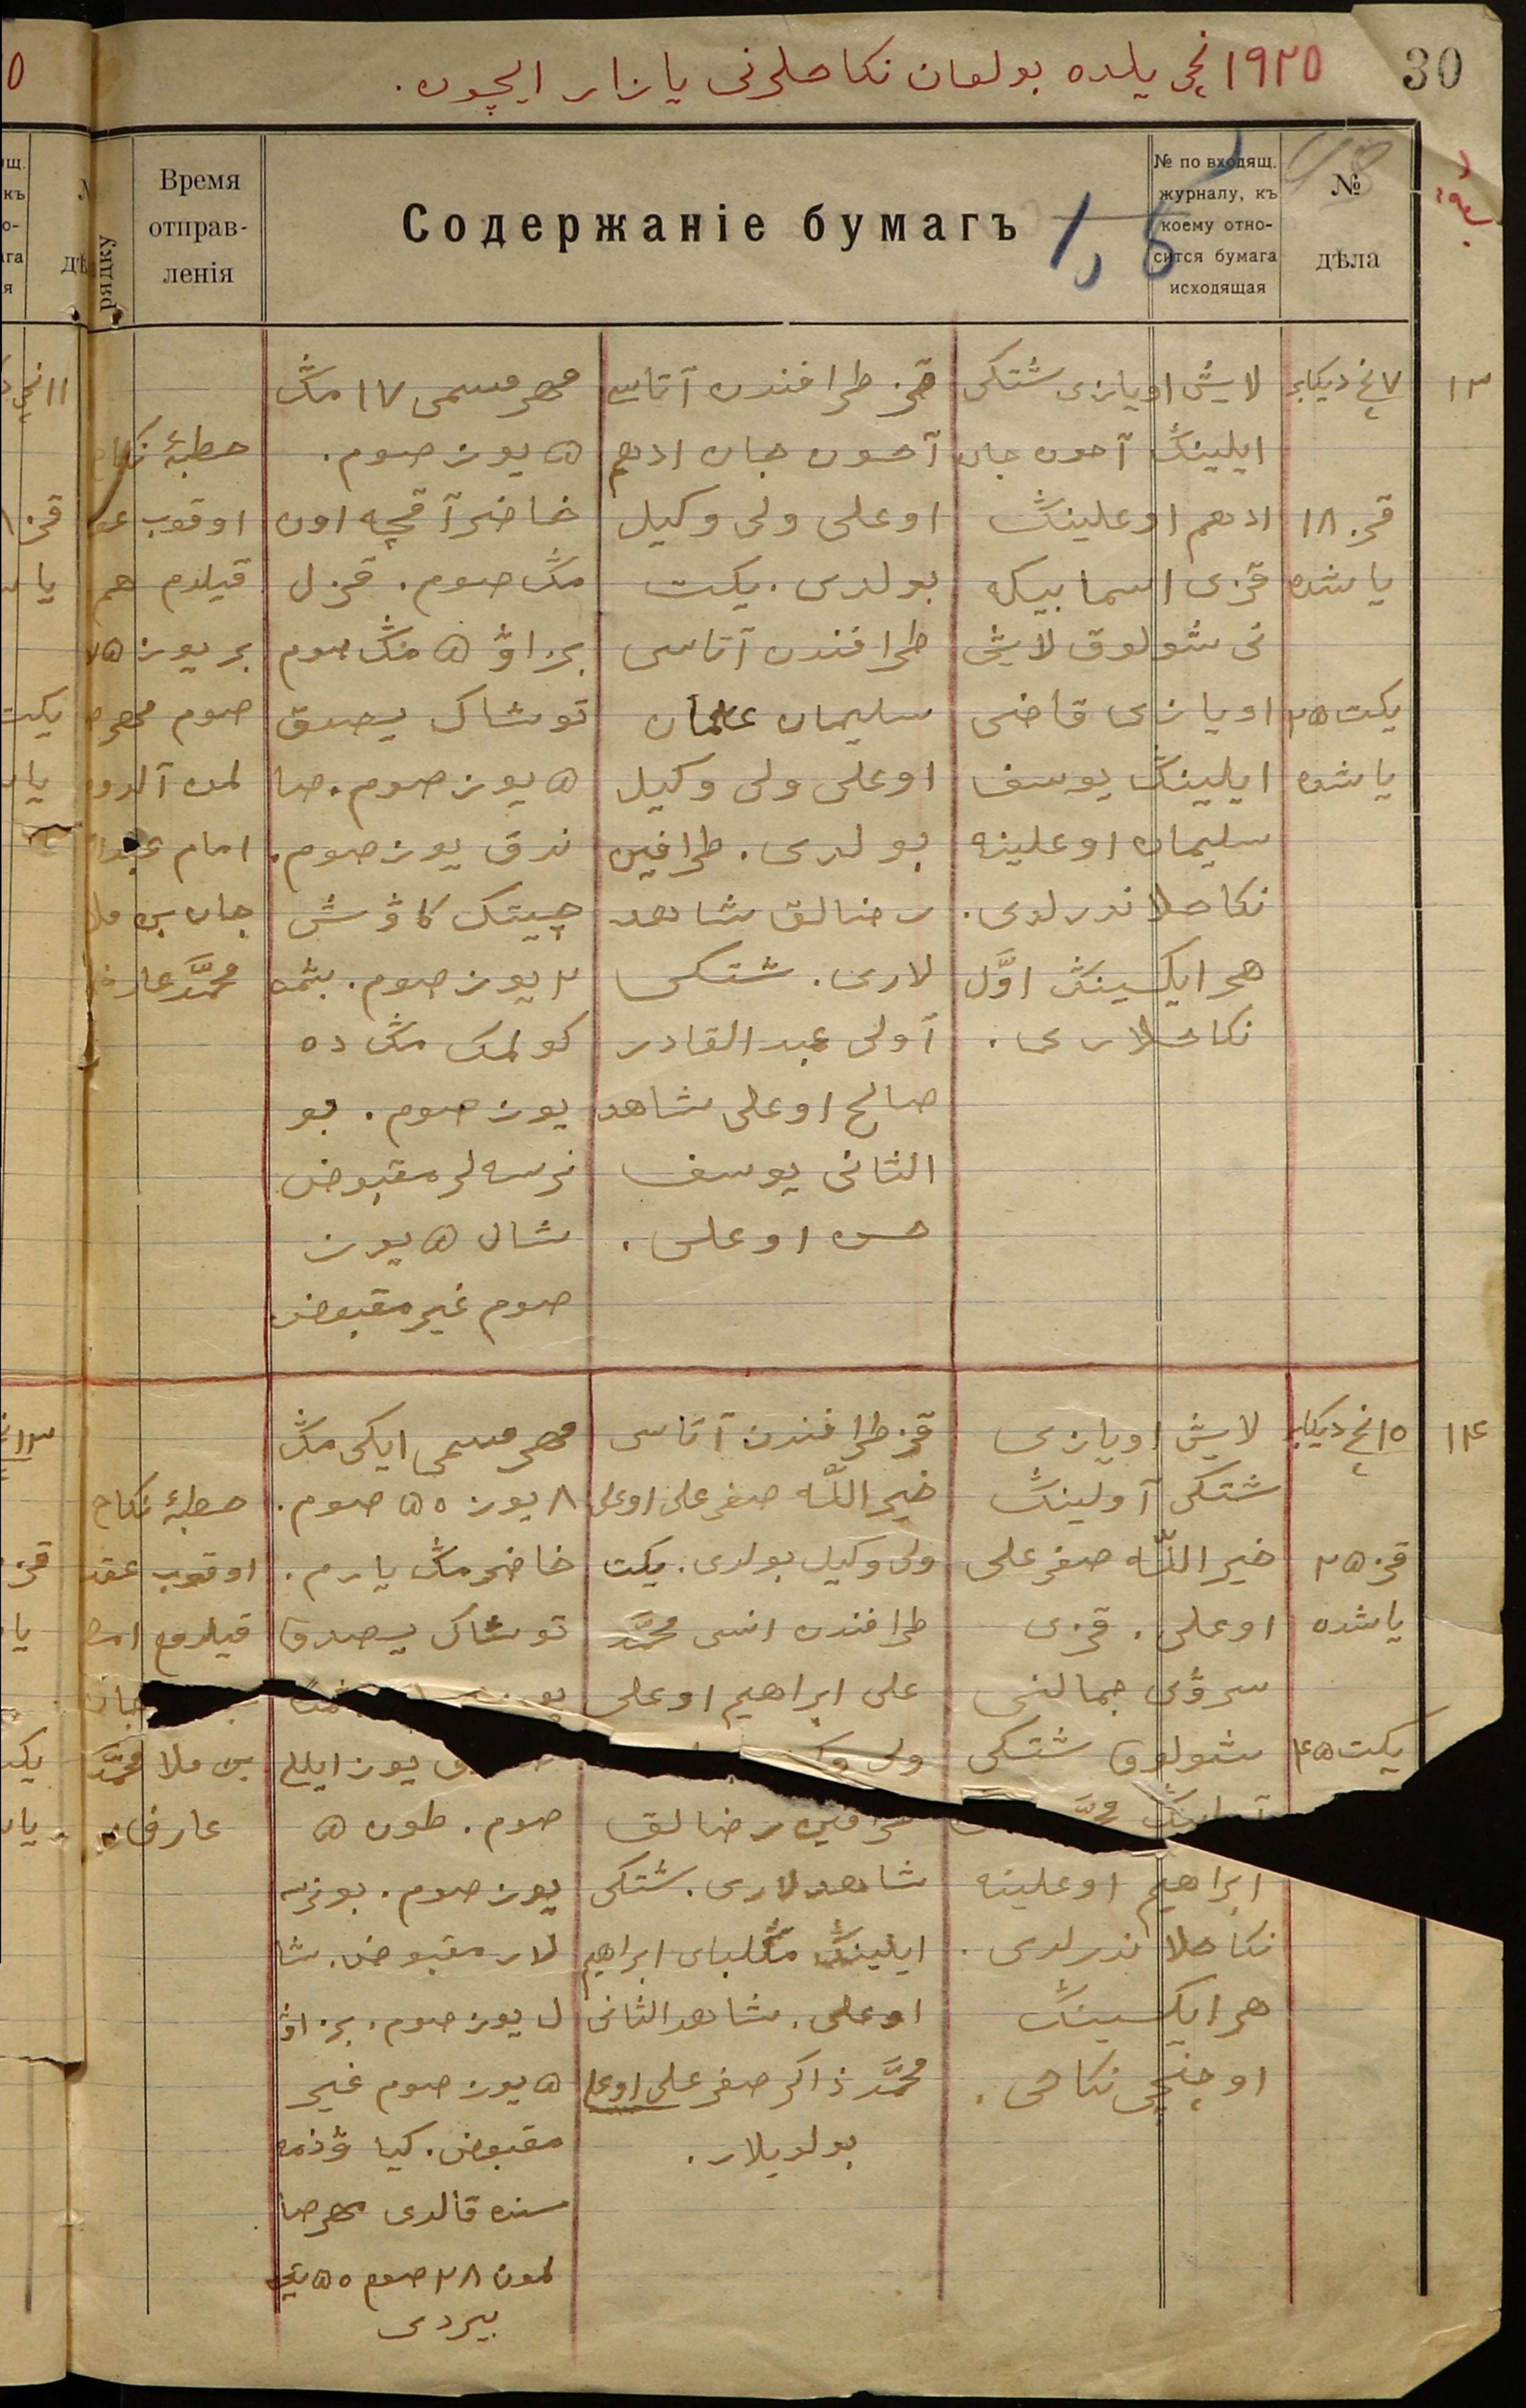 30
١٩٢٥ نچی یلده بولغان نکاحلرنی یازار ایچون.
№ дѣла
№ по входящ. журналу, къ коему относится бумага исходящая
Содержаніе бумагъ
Время отправленія
١٣
٧ نچی دیکابر
قز ١٨
یاشده
یکت ٢٥
یاشده
لایش اویازی شتکی
ایلینڭ آخون جان
ادهم اوغلینڭ
قزی اسما بیکه
نی شولوق لایش
اویازی قاضی
ایلینڭ یوسف
سلیمان اوغلینه
نکاحلاندرلدی.
هر ایکسینڭ اوّل
نکاحلاری.
قز طرافندن آتاسی
آخون جان ادهم
اوغلی ولی وکیل
بولدی. یکت
طرافندن آتاسی
سلیمان عثمان
اوغلی ولی وکیل
بولدی. طرافین
رضالق شاهد
لاری. شتکی
آولی عبد القادر
صالح اوغلی شاهد
الثانی یوسف
حسن اوغلی.
مهر مسمی ١٧ مڭ
٥ یوز صوم.
خاضر آقچه اون
مڭ صوم. قزل
بزاو ٥ مڭ صوم
توشاك یصدق
٥ یوز صوم. صا
ندق یوز صوم.
چیتك كاوش
٢ یوز صوم.
كولمك مڭ ده
یوز صوم. بو
نرسه لر مقبوض
شال ٥ یوز
صوم غیر مقبوض.
خطبهٔ نکاح
اوقوب عقد
قیلدم هم
بر یوز ٧٥
صوم مهر ص
لمن آلدوم
امام
جان بن ملا
محمّد عارف
١٤
١٥ نچی دیکابر
قز ٢٥
یاشده
یکت ٤٥
لایش اویازی
شتکی آولینڭ
خیر اللّه صفر علی
اوغلی. قزی
سروی جمالنی
شولوق شتکی
ابراهیم اوغلینه
نکاحلاندرلدی.
هر ایکسینڭ
اوچنچی نکاحی.
قز طرافندن آتاسی
خیر اللّه صفر علی اوغلی
ولی وکیل بولدی. یکت
طرافندن انسی محمّد
علی ابراهیم اوغلی
ولی
رضالق
شاهدلاری. شتکی
ایلینڭ مڭلبای ابراهیم
اوغلی. شاهد الثانی
محمّد ذاکر صفر علی اوغلی
بولدیلار.
مهر مسمی ایکی مڭ
٨ یوز ٥٠ صوم.
خاضر مڭ یارم.
توشاك یصدق
یوز ایللی
صوم. طون ٥
یوز صوم. بو نرسه
لار مقبوض. شا
ل یوز صوم. بزاو
٥ یوز صوم غیر
مقبوض. کیاو ذمه
سنده قالدی مهر صا
لمون ٢٨ صوم ٥٠ تین
بیردی
خطبهٔ نکاح
اوقوب عقد
قیلدوم
جان
بن ملا محمّد
عارف.